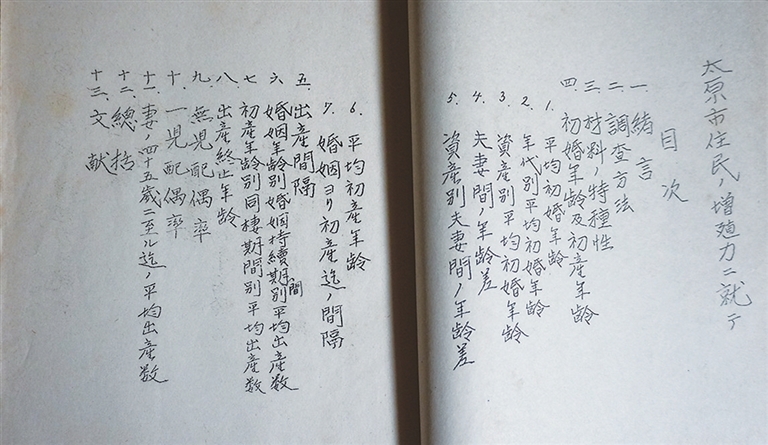 太原市住民ノ増殖力ニ就テ
目次
一、緒言
二、調查方法
三、材料ノ特種性
四、初婚年齢及初産年齢
1. 平均初婚年齢
2. 年代別平均初婚年齢
3. 資産別平均初婚年齢
4. 夫妻間ノ年齢差
5. 資産別夫妻間ノ年齢差
6. 平均初産年齢
7. 婚姻ヨリ初産迄ノ間隔
五、出産間隔
六、婚姻年齢別婚姻持續期間別平均出産数
七、初産年齢別同棲期間別平均出産数
八、出産終止年齢
九、無児配偶率
十、一児配偶率
十一、妻ノ四十五歳ニ至ル迄ノ平均出産数
十二、總括
十三、文献